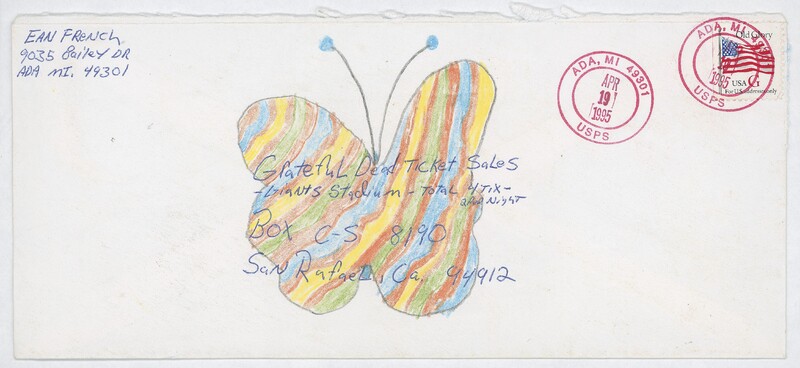 EAN FRENCH
9035 Bailey DR
ADA MI. 49301
Old Glory
USA G1
For U.S. addresses only
ADA, MI 49301
APR
19
1995
USPS
ADA, MI 49301
1995
USPS
Grateful Dead Ticket Sales
-Giants Stadium - Total 4 Tix-
2 Per Night
Box C-S 8190
San Rafael, Ca. 94912